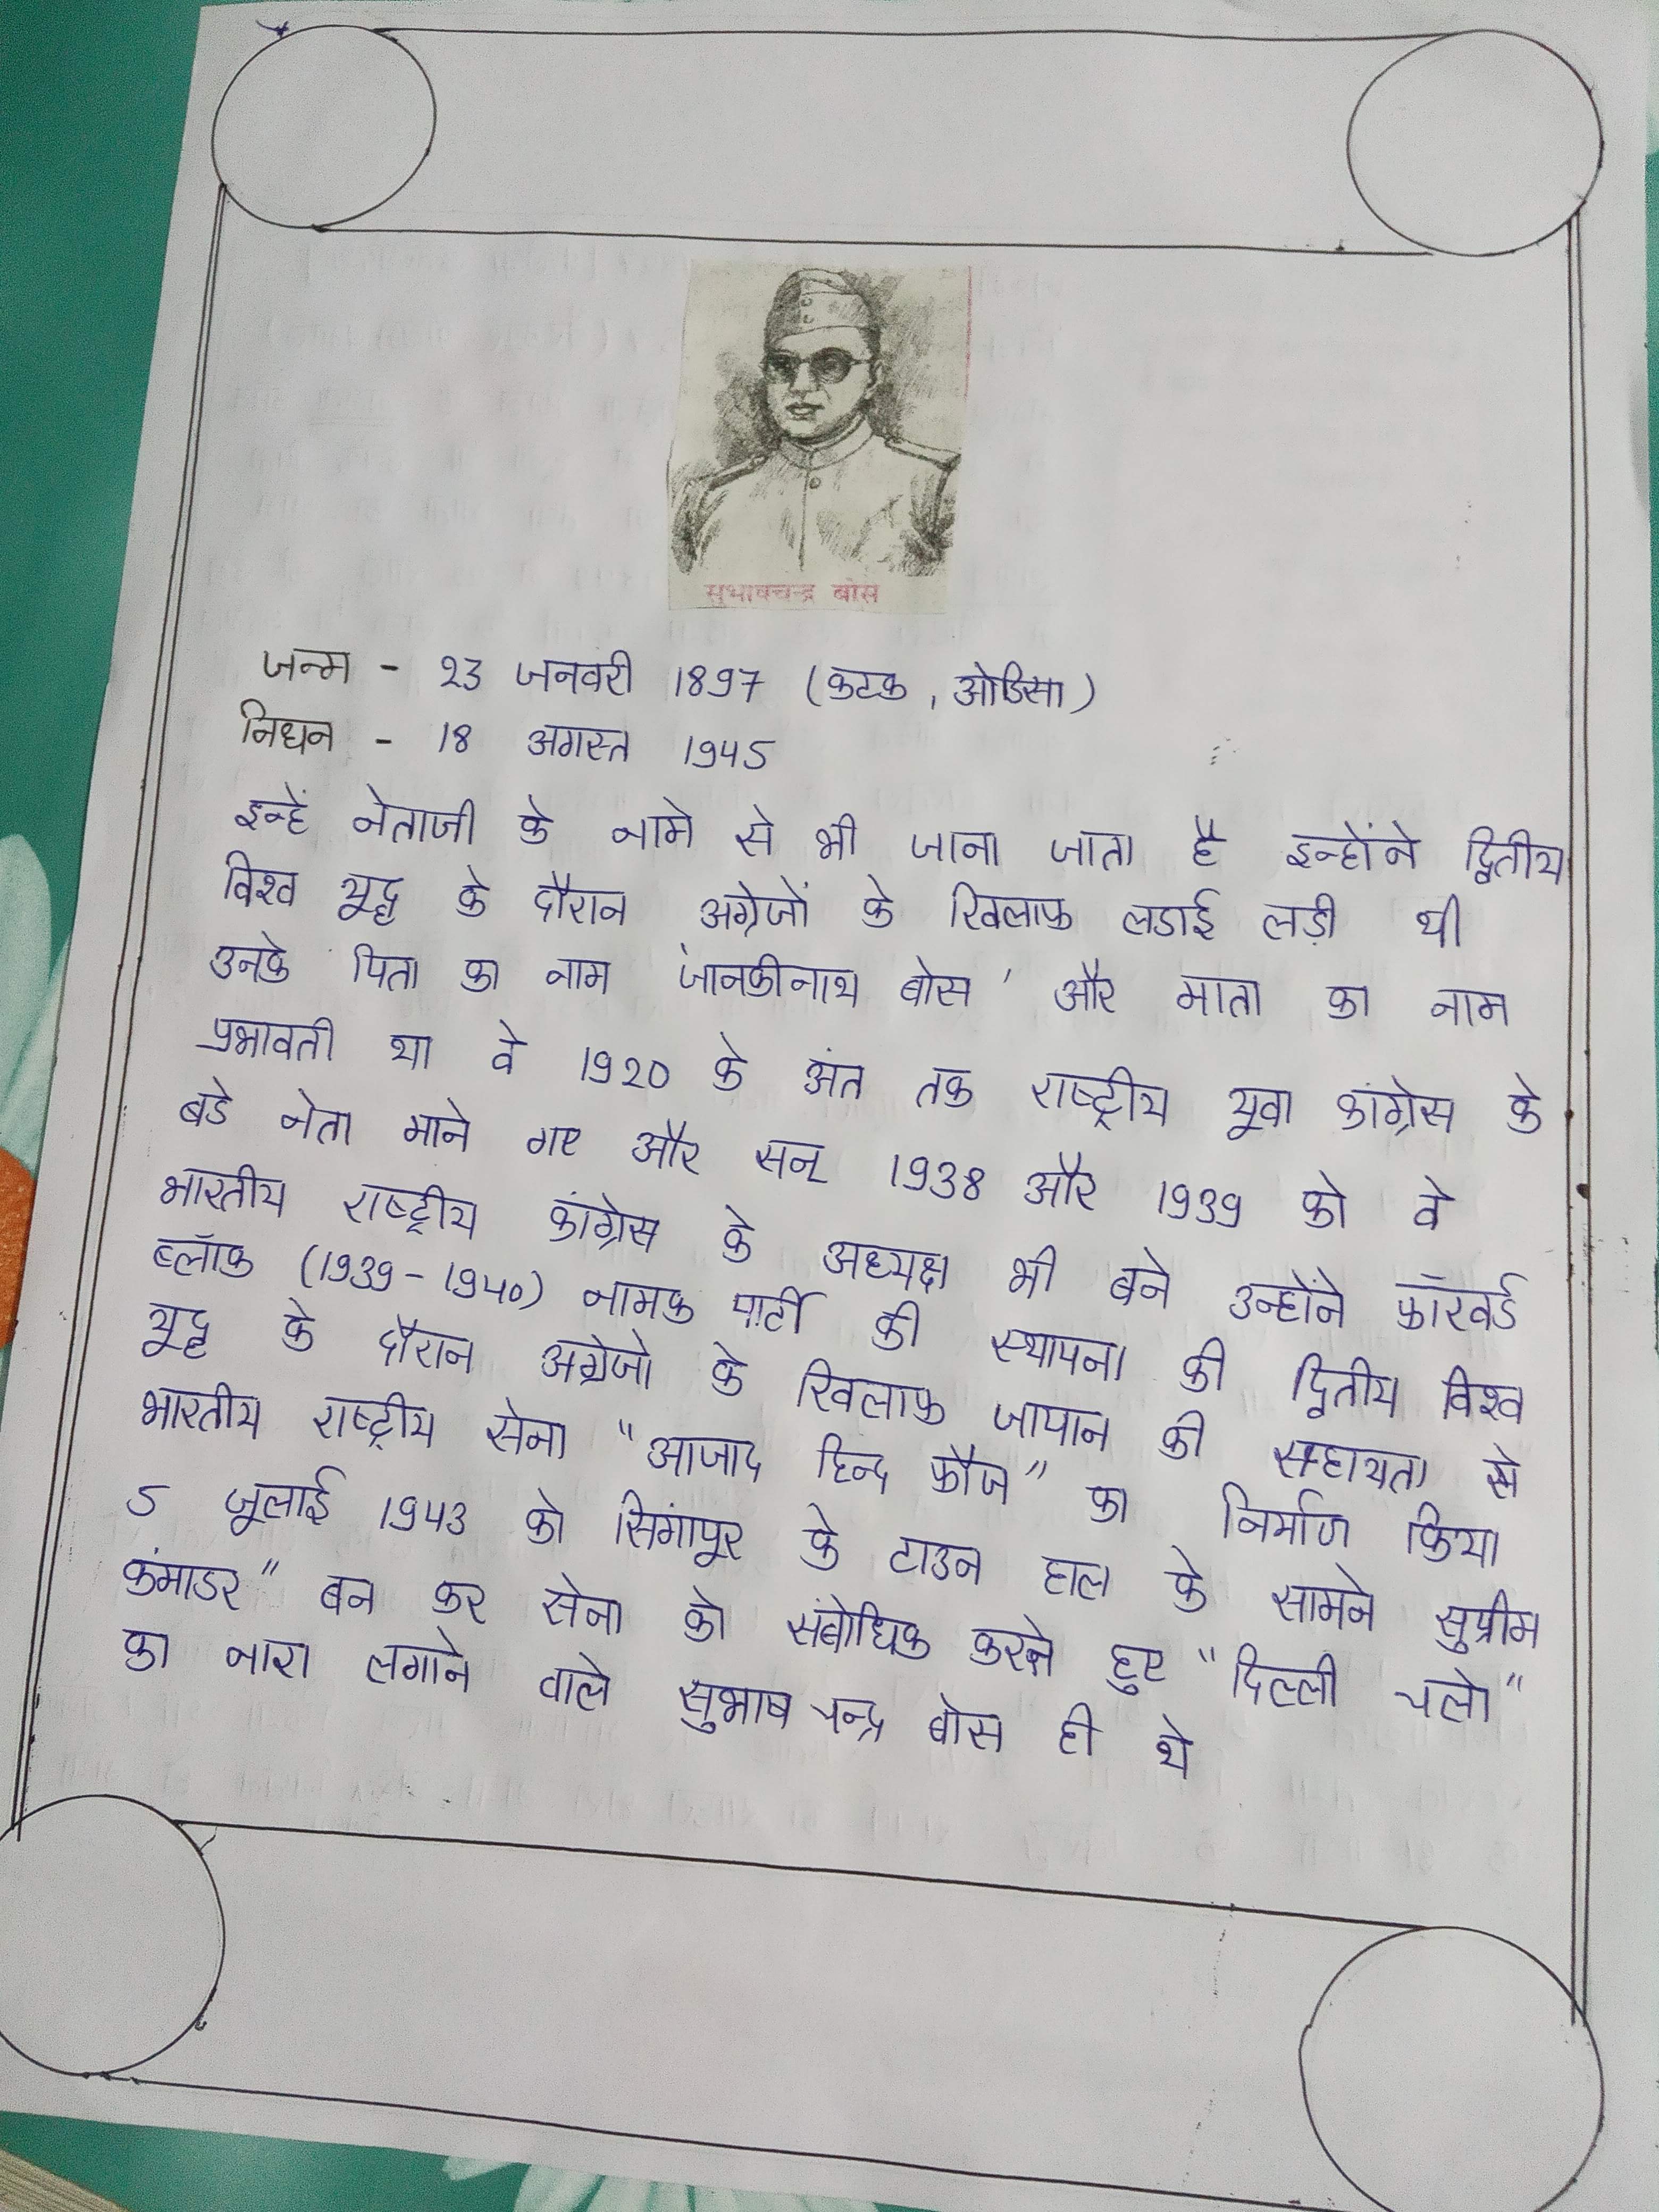 सुभाषचन्द्र बोस
जन्म - 23 जनवरी 1897 (कटक, ओडिसा)
निधन - 18 अगस्त 1945
इन्हें नेताजी के नामे से भी जाना जाता है इन्होंने द्वितीय
विश्व यूद्ध के दौरान अग्रेजों के खिलाफ लडाई लड़ी थी
उनके पिता का नाम 'जानकीनाथ बोस' और माता का नाम
प्रभावती था वे 1920 के अंत तक राष्ट्रीय यूवा कांग्रेस के
बडे नेता माने गए और सन् 1938 और 1939 को वे
भारतीय राष्ट्रीय कांग्रेस के अध्यक्ष भी बने उन्होंने फॉरवर्ड
ब्लॉक (1939-1940) नामक पार्टी की स्थापना की द्वितीय विश्व
यूद्ध के दौरान अग्रेजो के खिलाफ जापान की सहायता से
भारतीय राष्ट्रीय सेना "आजाद हिन्द फौज" का निर्माण किया
5 जूलाई 1943 को सिंगापूर के टाउन हाल के सामने सुप्रीम
कंमाडर" बन कर सेना को संबोधिक करते हुए "दिल्ली चलो"
का नारा लगाने वाले सुभाष चन्द्र बोस ही थे